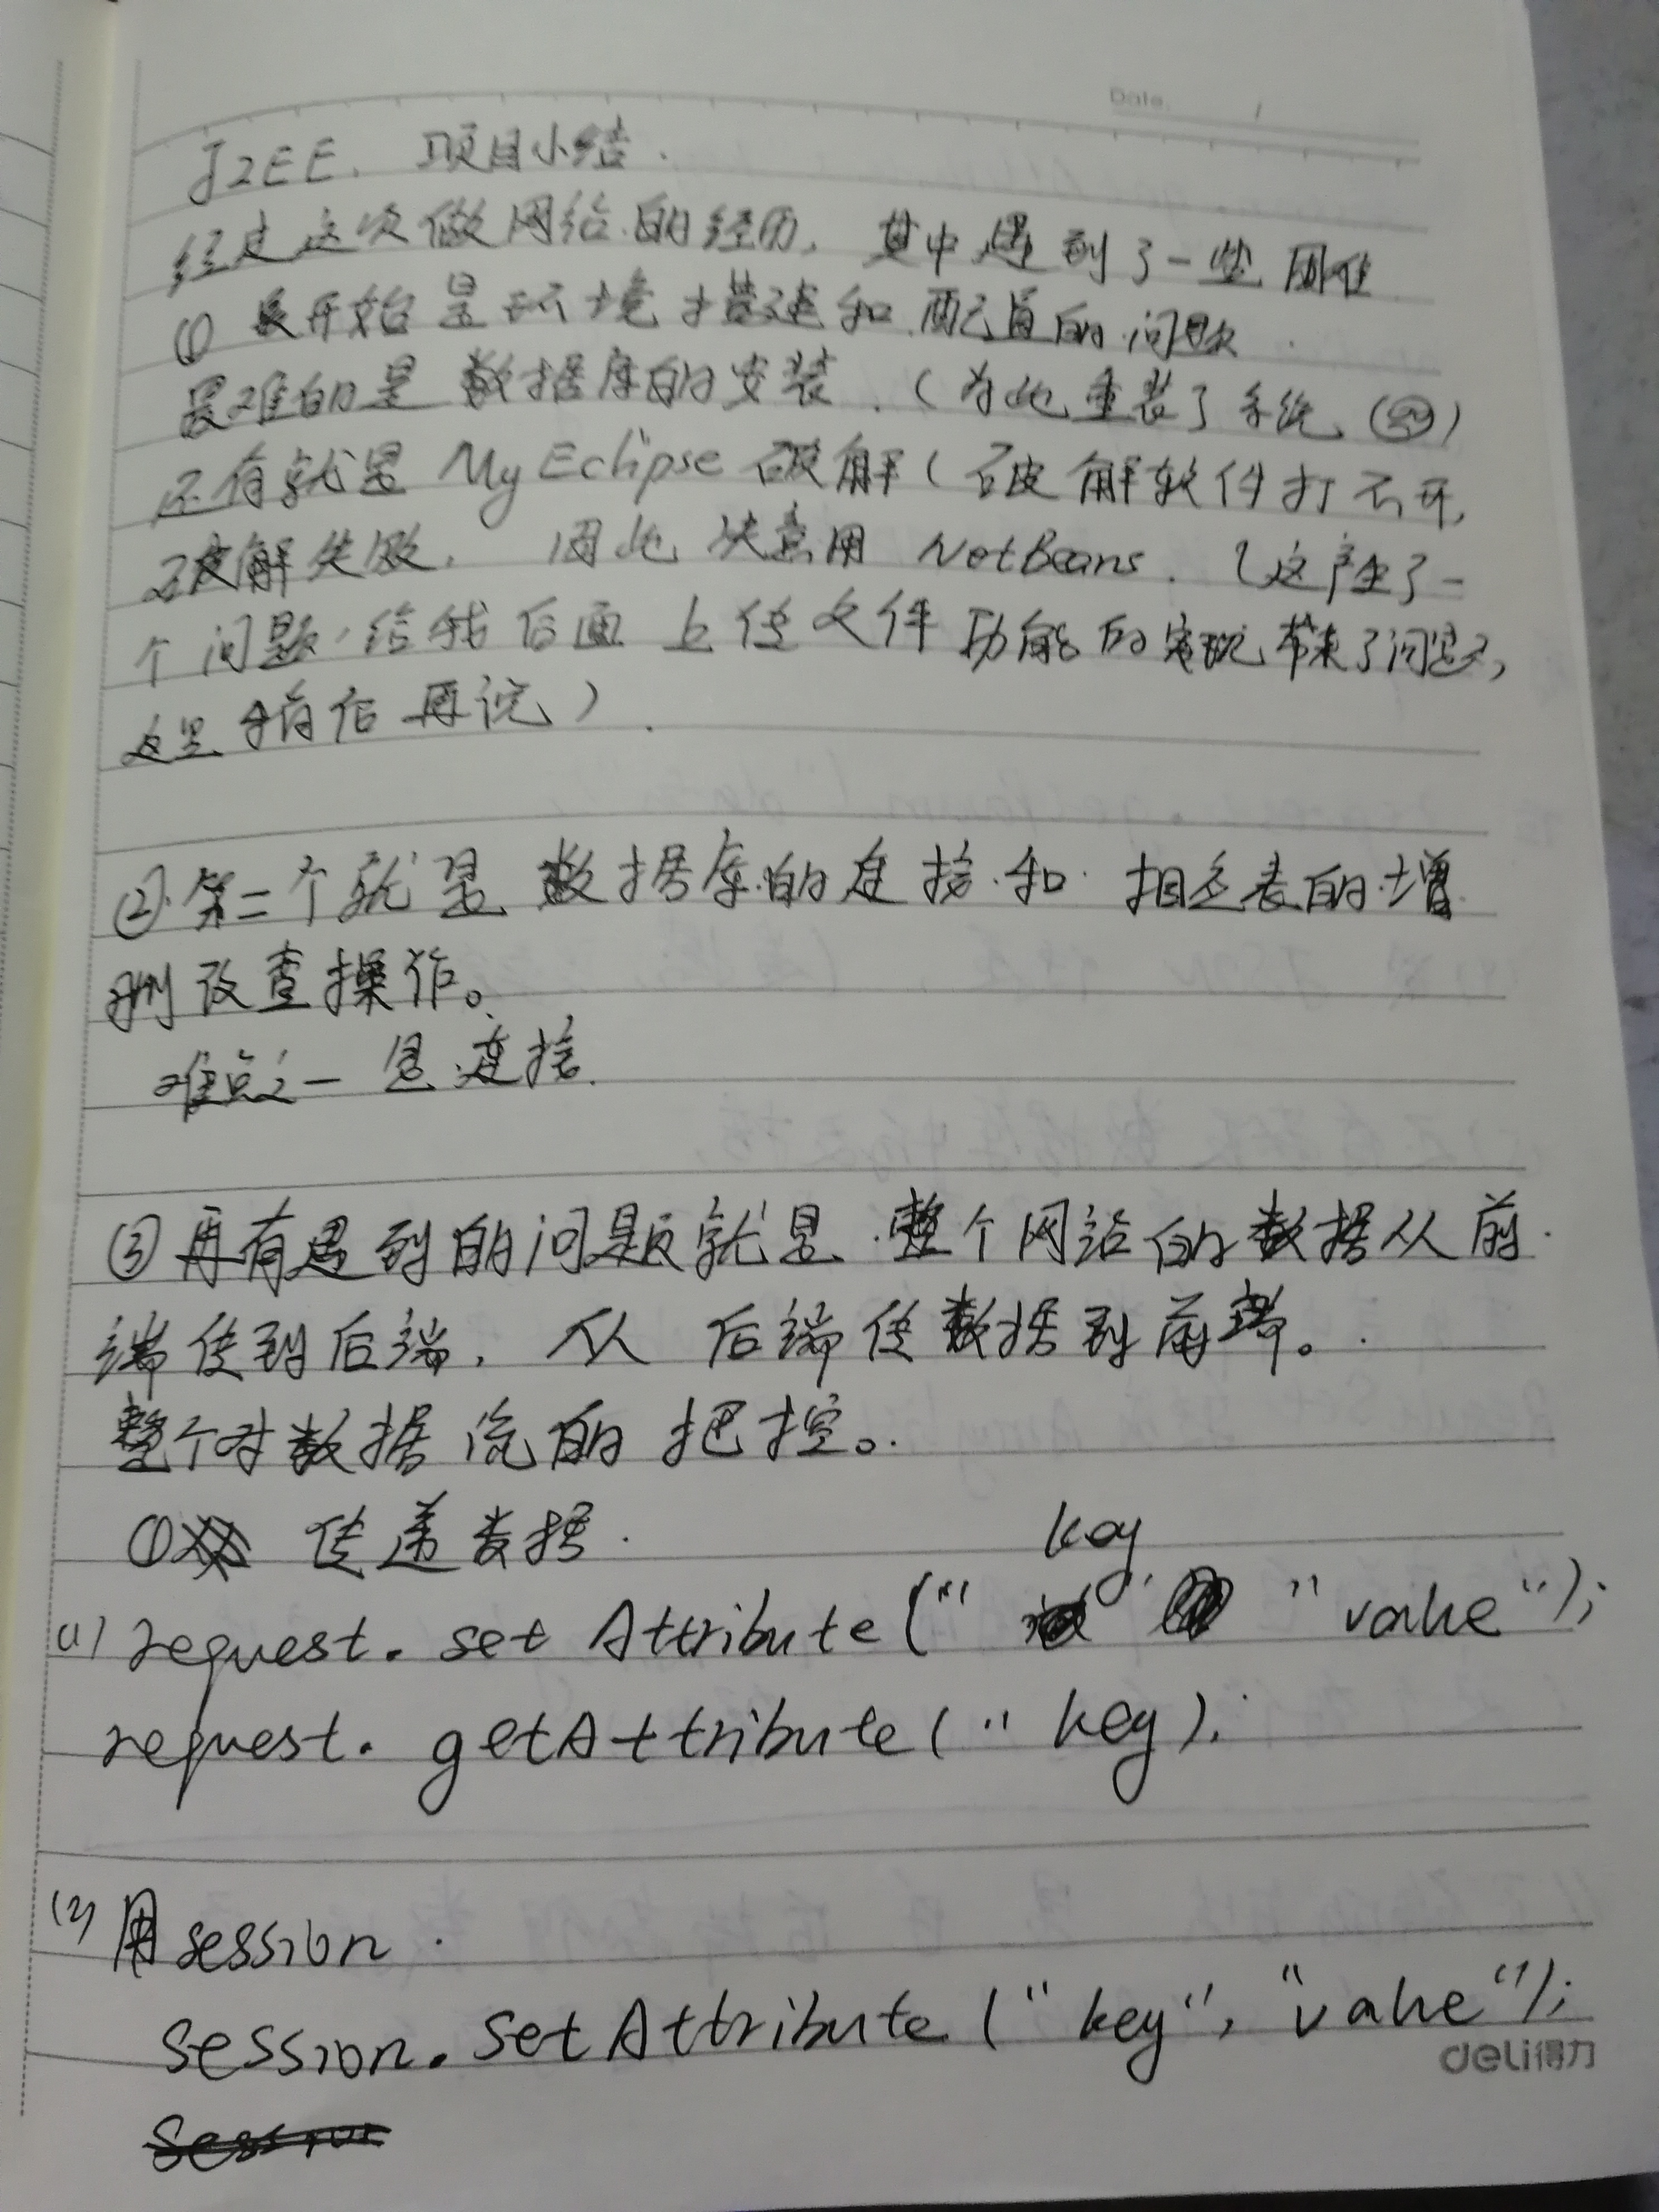 Date. /
J2EE. 项目小结.
经过这次做网站的经历, 其中遇到了一些困难
① 最开始是环境搭建和配置的问题.
最难的是数据库的安装.(为此重装了系统
还有就是MyEclipse破解(破解软件打不开,
破解失败. 因此决意用NetBeans. (这产生了一
个问题,给我后面上传文件功能的实现带来了问题,
这里稍后再说).
②.第二个就是数据库的连接和相应表的增
删改查操作。
难点之一是连接.
③再有遇到的问题就是整个网站的数据从前
端传到后端, 从后端传数据到前端。
整个对数据流的把控。
① 传递数据.
key
(1) request.setAttribute(" ", "value");
request.getAttribute("key);
(2) 用session.
session.setAttribute("key", "value");
deli得力
session